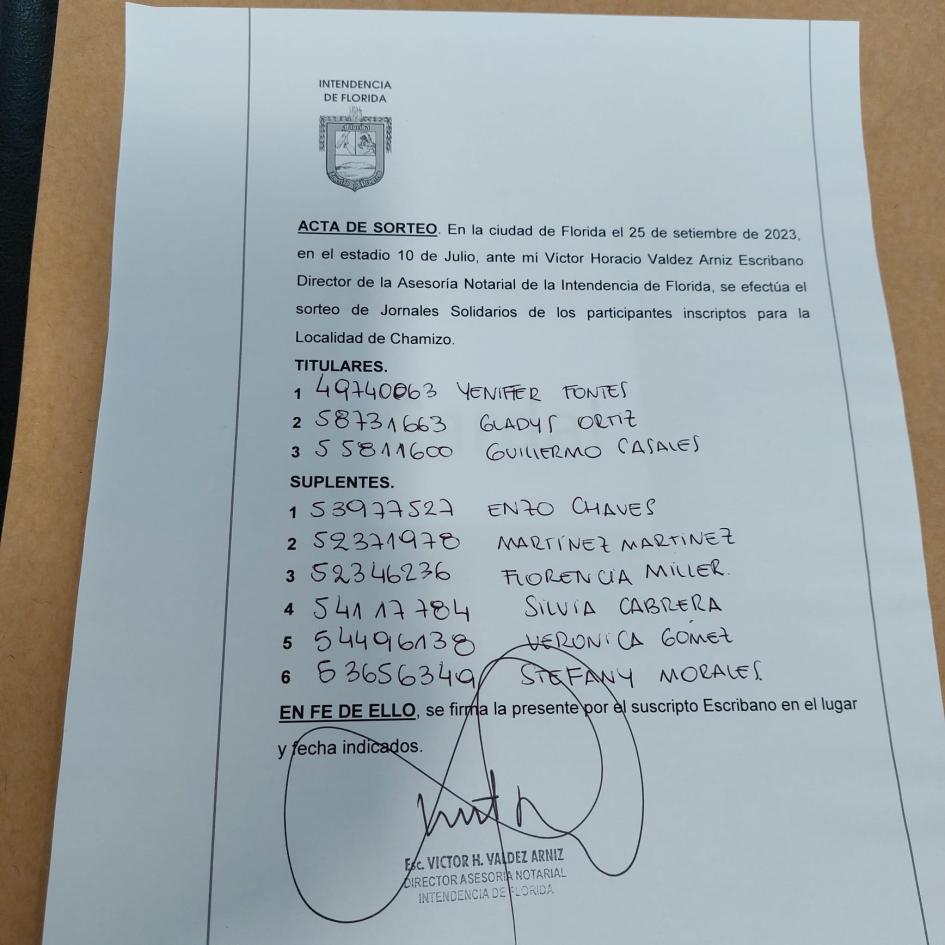 INTENDENCIA
DE FLORIDA
ACTA DE SORTEO. En la ciudad de Florida el 25 de setiembre de 2023,
en el estadio 10 de Julio, ante mí Victor Horacio Valdez Arniz Escribano
Director de la Asesoría Notarial de la Intendencia de Florida, se efectúa el
sorteo de Jornales Solidarios de los participantes inscriptos para la
Localidad de Chamizo.
TITULARES.
1 49740063 YENIFER FONTES
2 58731663 GLADYS ORTIZ
3 55811600 GUILLERMO CASALES
SUPLENTES.
1 53977527 ENZO CHAVES
2 52371978 MARTÍNEZ MARTINEZ
3 52346236 FLORENCIA MILLER.
4 54117784 SILVIA CABRERA
5 54496138 VERONICA GÓMEZ
6 53656349 STEFANY MORALES.
EN FE DE ELLO, se firma la presente por el suscripto Escribano en el lugar
y fecha indicados.
Esc. VICTOR H. VALDEZ ARNIZ
DIRECTOR ASESORIA NOTARIAL
INTENDENCIA DE FLORIDA